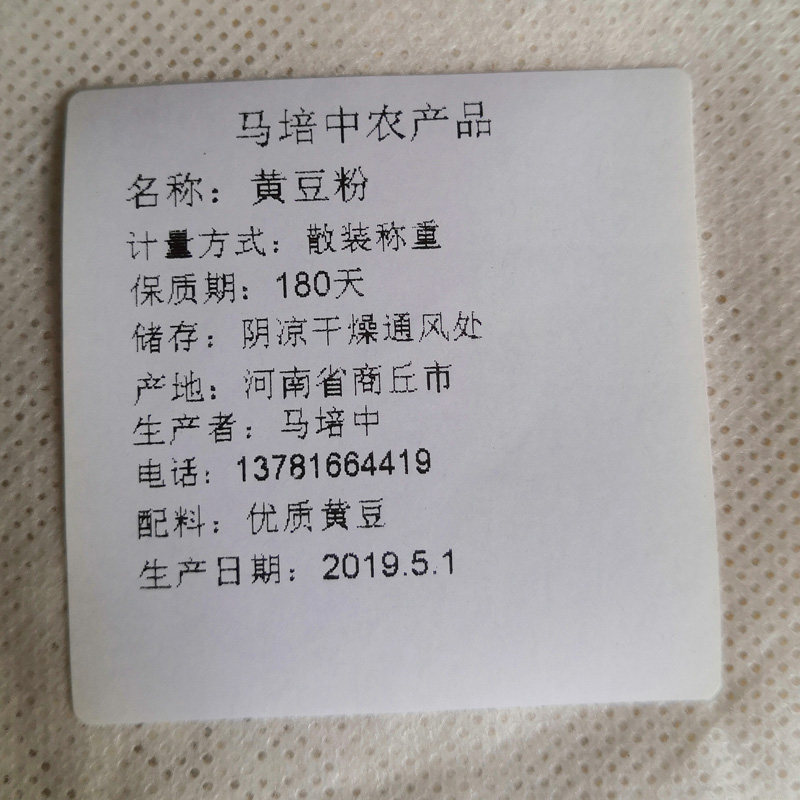 马培中农产品
名称：黄豆粉
计量方式：散装称重
保质期：180天
储存：阴凉干燥通风处
产地：河南省商丘市
生产者：马培中
电话：13781664419
配料：优质黄豆
生产日期：2019.5.1